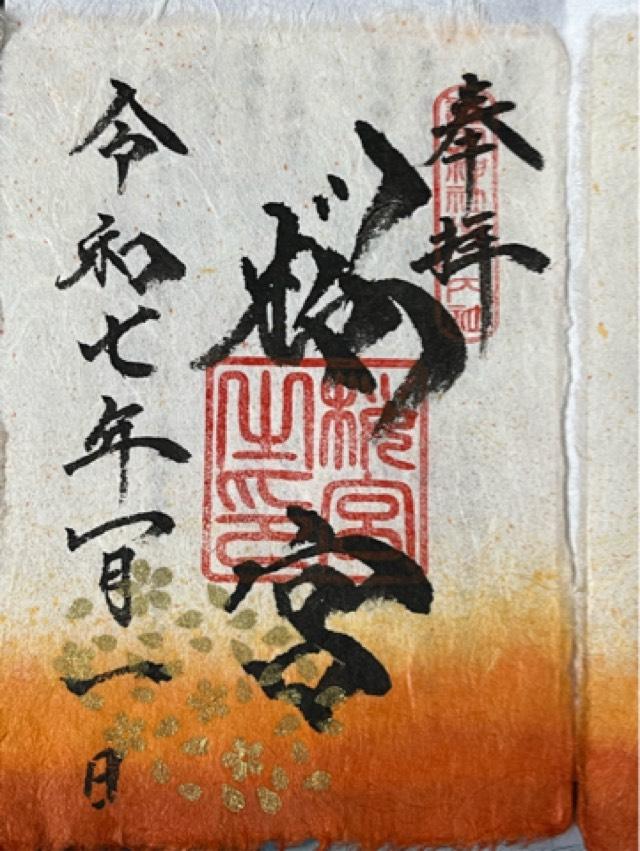 奉拝
桜宮
桜宮之印
令和七年一月一日